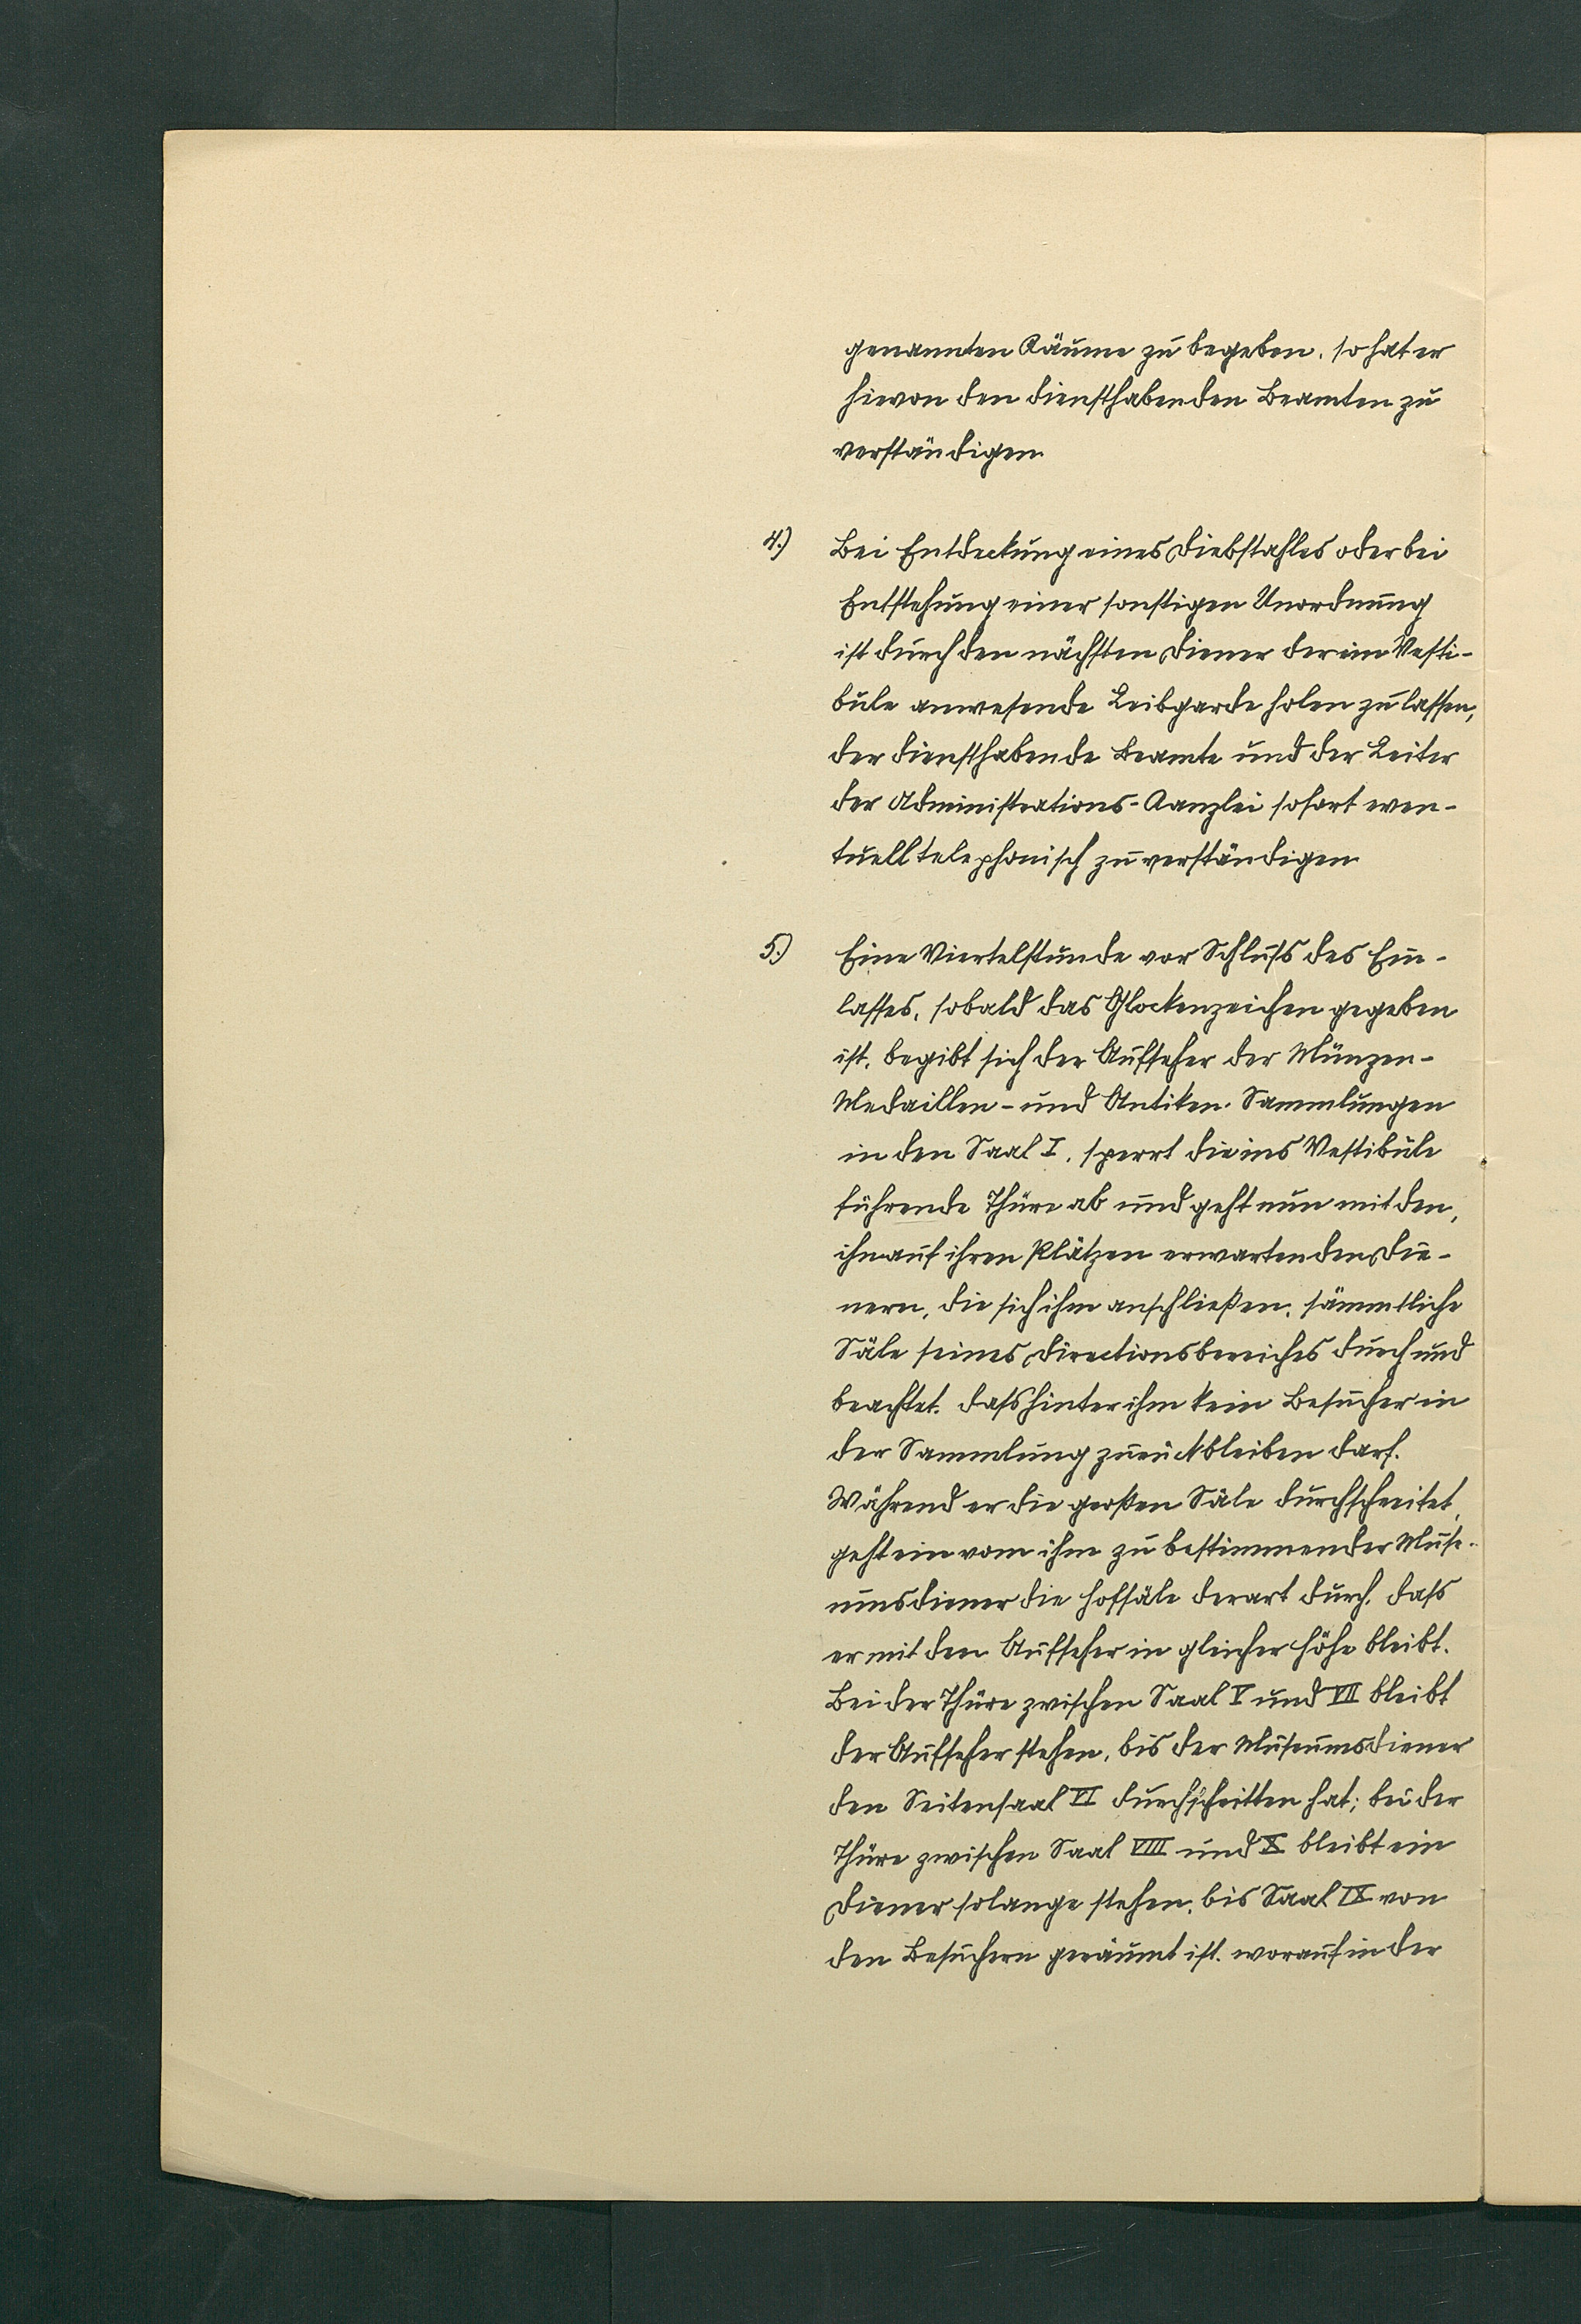 genannten Räume zu begeben, so hat er
hievon den diensthabenden Beamten zu
verständigen.
4.) Bei Entdeckung eines Diebstahles oder bei
Entstehung einer sonstigen Unordnung
ist durch den nächsten Diener der im Vesti-
bule anwesende Leibgarde holen zu lassen,
der diensthabende Beamte und der Leiter
der Administrations-Kanzlei sofort even-
tuell telephonisch zu verständigen.
5.) Eine Viertelstunde vor Schluss des Ein-
lasses, sobald das Glockenzeichen gegeben
ist, begibt sich der Aufseher der Münzen-
Medaillen- und Antiken-Sammlungen
in den Saal I, sperrt die ins Vestibule
führende Thüre ab und geht nun mit den,
ihn auf ihren Plätzen erwartenden Die-
nern, die sich ihm anschließen, sämmtliche
Säle seines Directionsbereiches durch und
beachtet, dass hinter ihm kein Besucher in
der Sammlung zurückbleiben darf.
Während er die großen Säle durchschreitet,
geht ein vom ihm zu bestimmender Muse-
umsdiener die Hofsäle derart durch, dass
er mit dem Aufseher in gleicher Höhe bleibt.
Bei der Thüre zwischen Saal V und VII bleibt
der Aufseher stehen, bis der Museumsdiener
den Seitensaal VI durchschritten hat; bei der
Thüre zwischen Saal VIII und X bleibt ein
Diener solange stehen, bis Saal IX von
den Besuchern geräumt ist, worauf in der